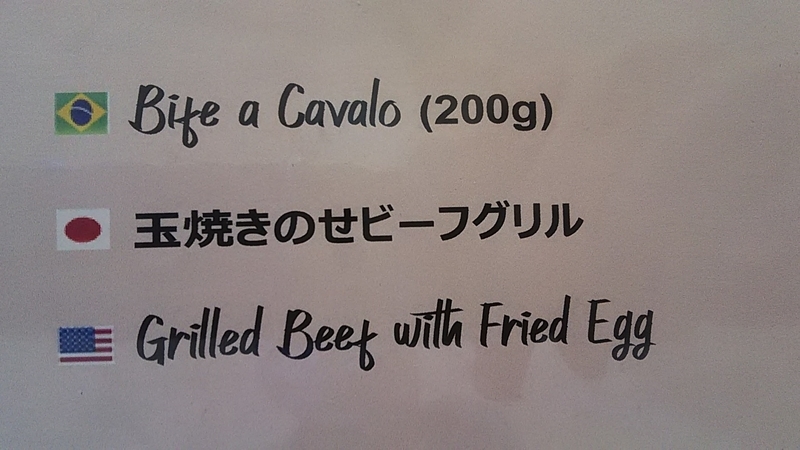 Bife a Cavalo (200g)
玉焼きのせビーフグリル
Grilled Beef with Fried Egg